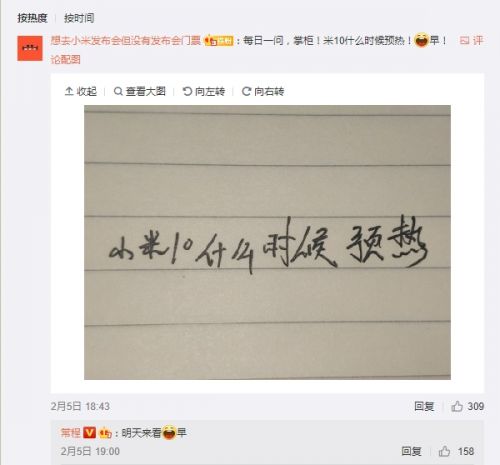 按热度 按时间
想去小米发布会但没有发布会门票 : 每日一问，掌柜！米10什么时候预热！早！ 评
论配图
收起 查看大图 向左转 向右转
小米10什么时候预热
2月5日 18:43 回复 309
常程 V : 明天来看早
2月5日 19:00 回复 158